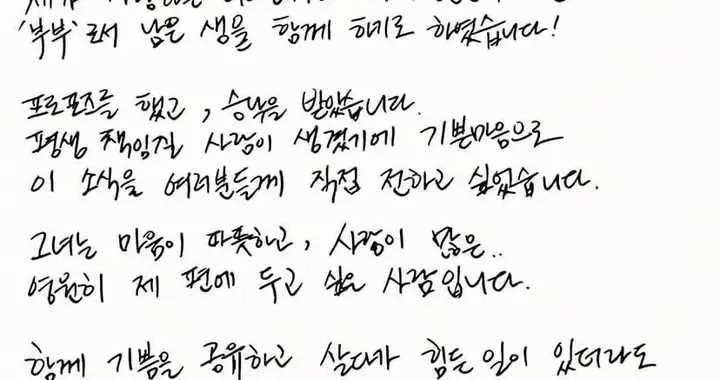 '부부'로서 남은 생을 함께 하기로 하였습니다!
프로포즈를 했고, 승낙을 받았습니다.
평생 책임질 사람이 생겼기에 기쁜마음으로
이 소식을 여러분들께 직접 전하고 싶었습니다.
그녀는 마음이 따뜻하고, 사랑이 많은..
영원히 제 편에 두고 싶은 사람입니다.
함께 기쁨을 공유하고 살다가 힘든 일이 있더라도